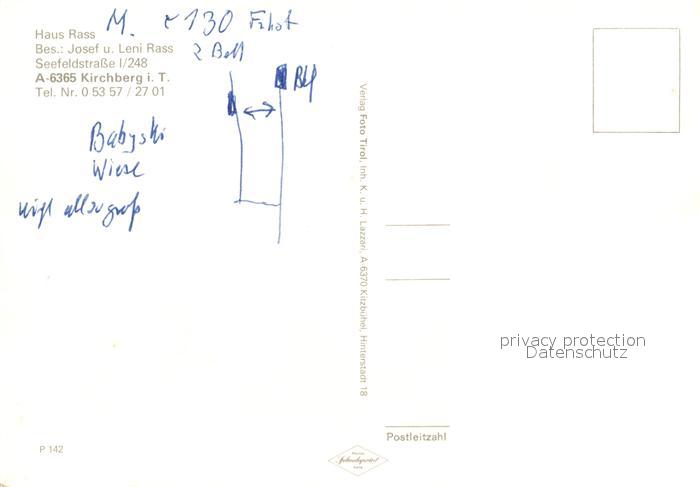 M. 130
Haus Rass
Bes.: Josef u. Leni Rass
Seefeldstraße I/248
A-6365 Kirchberg i. T.
Tel. Nr. 0 53 57 / 27 01
2 Bett
Babyski
Wiese
nicht allzu groß
Verlag Foto Tirol, Inh. K. u. H. Lazzari, A-6370 Kitzbühel, Hinterstadt 18
privacy protection
Datenschutz
Postleitzahl
P 142